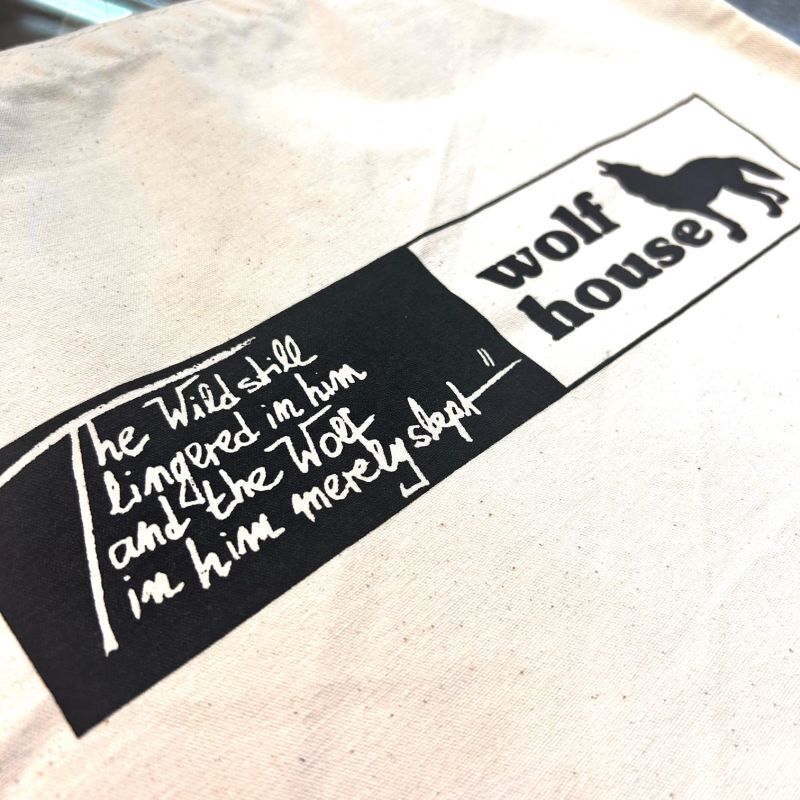 The Wild still
lingered in him
and the Wolf
in him merely slept"
wolf
house